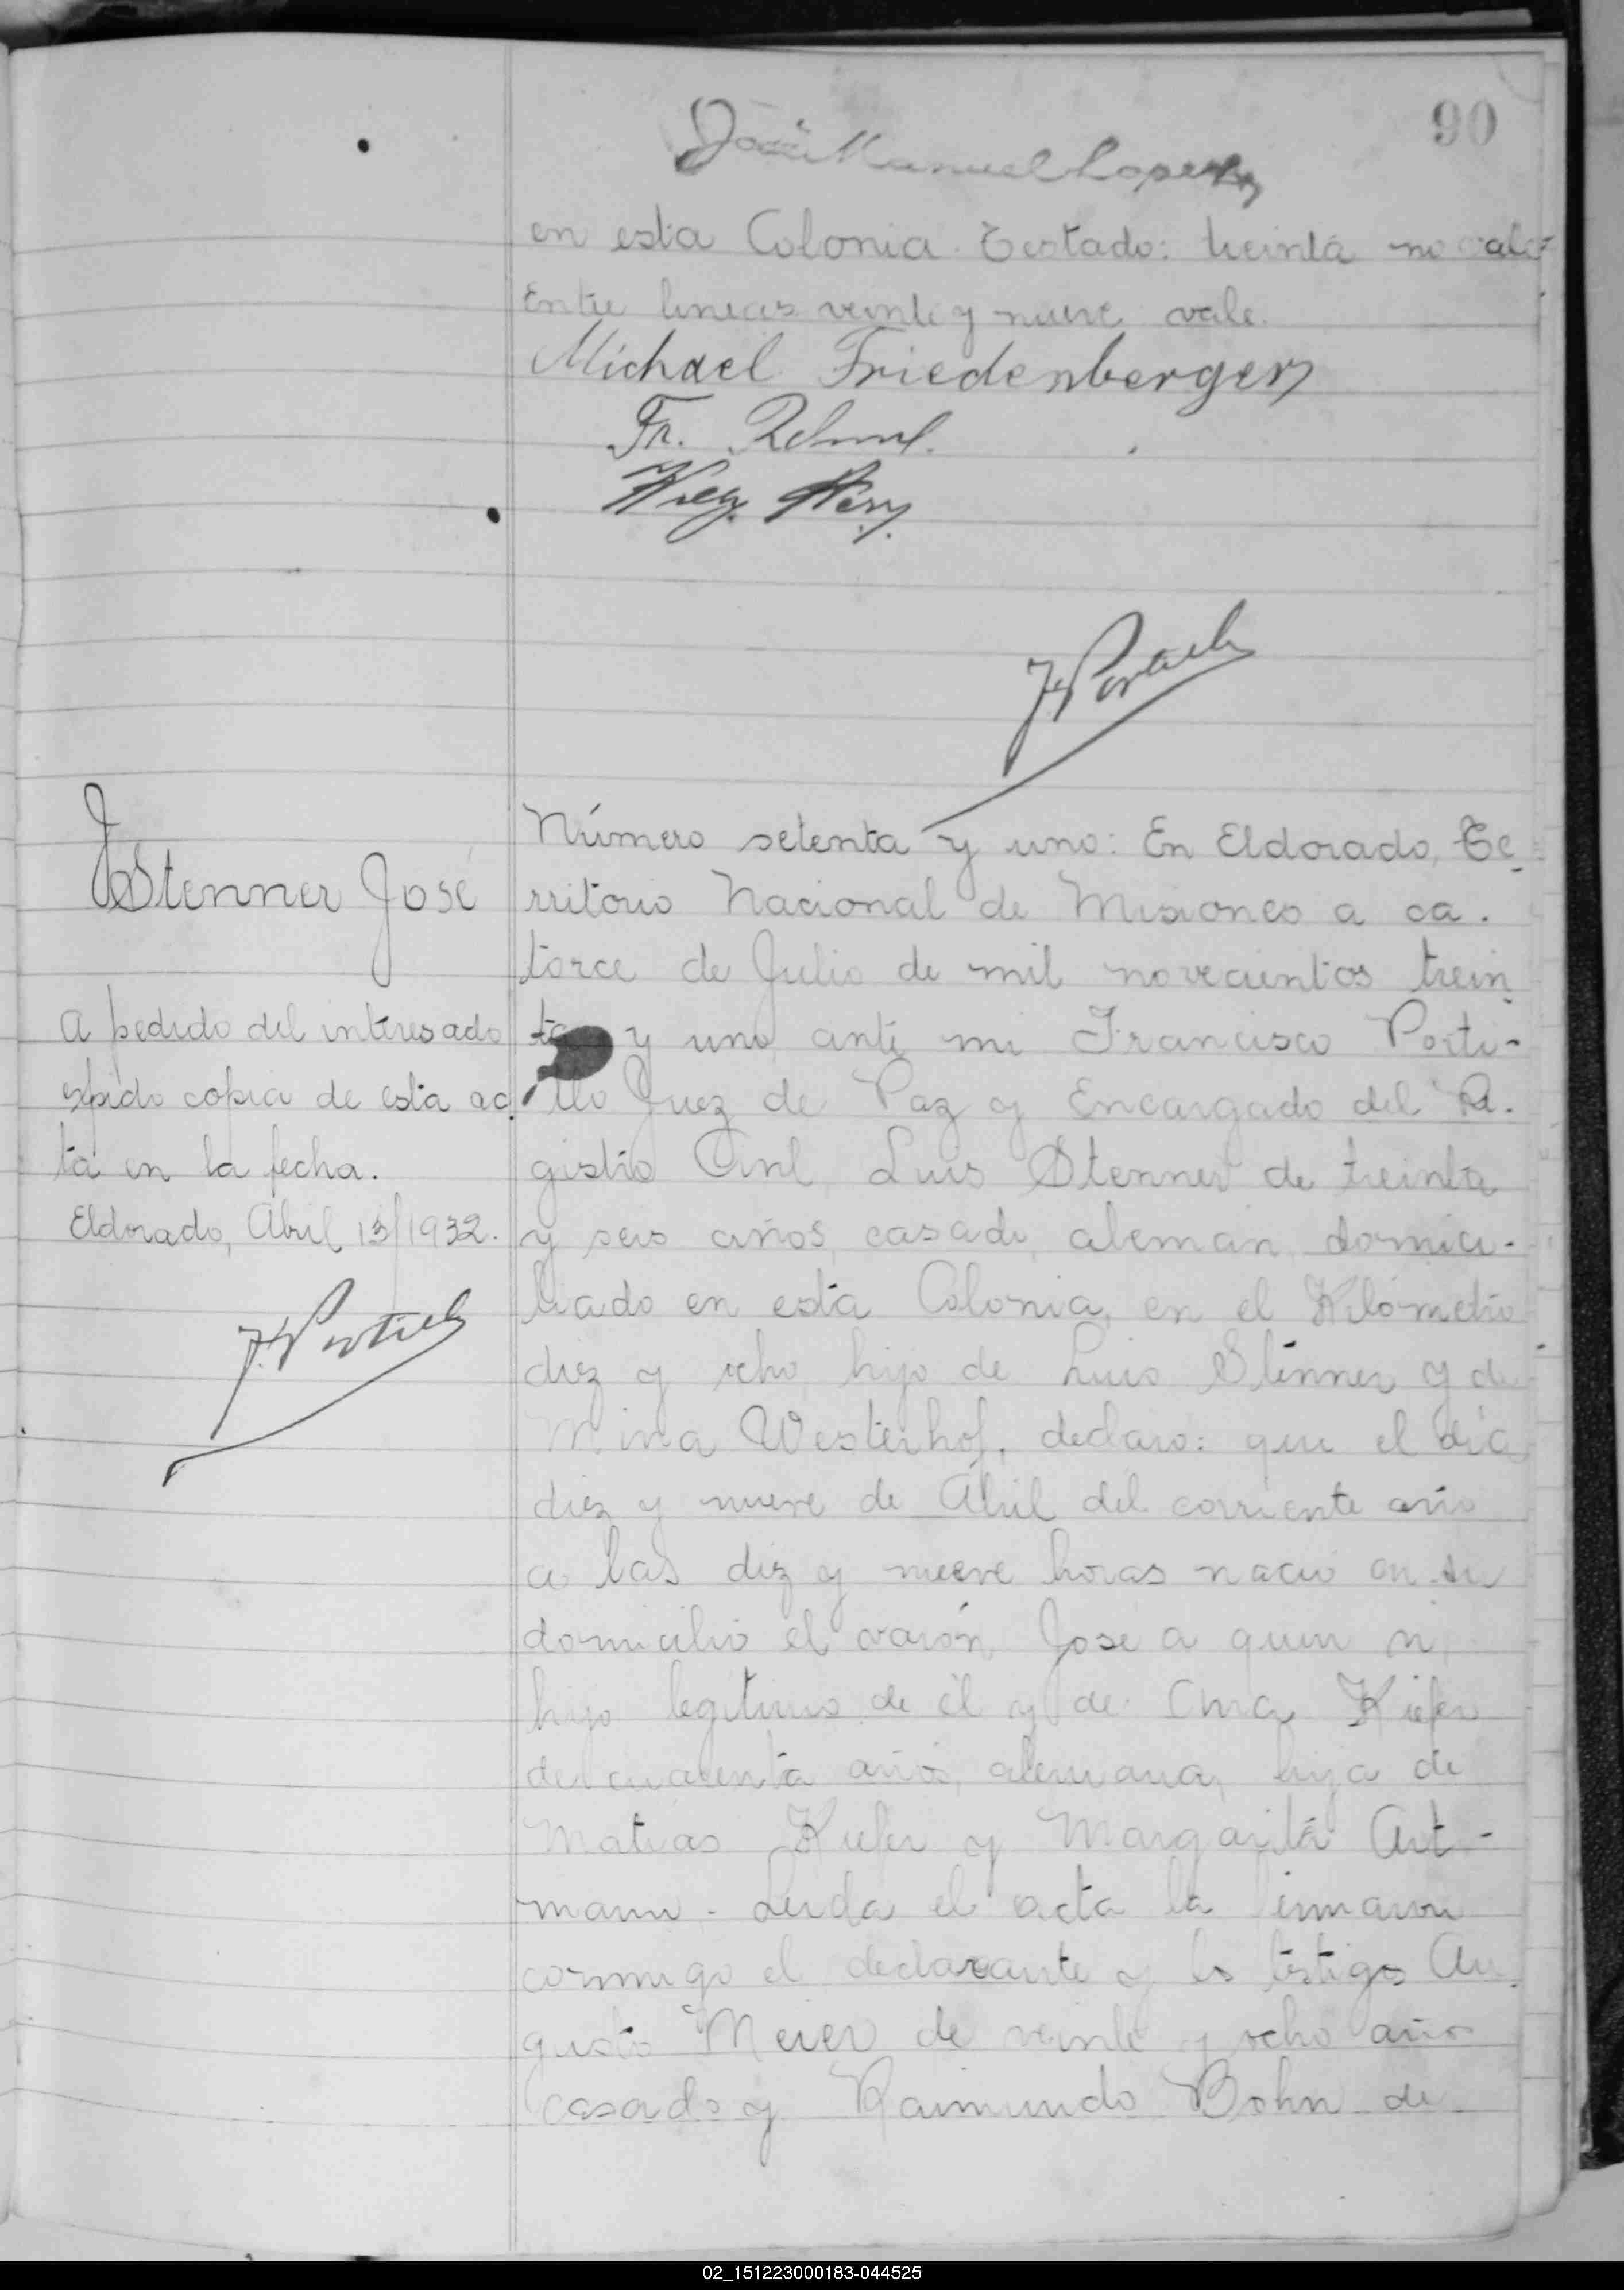 90
José Manuel Lopez
en esta Colonia. Testado: treinta no vale
Entre lineas veinte y nueve vale.
Michael Friedenberger
Fr.
Stenner José
A pedido del interesado
expido copia de esta ac-
ta en la fecha.
Eldorado, Abril 13/1932.
Número setenta y uno: En Eldorado, Te-
rritorio Nacional de Misiones a ca-
torce de Julio de mil novecientos trein-
ta y uno, ante mi Francisco Porti-
llo Juez de Paz y Encargado del Re-
gistro Civil, Luis Stenner de treinta
y seis años, casado, aleman, domici-
liado en esta Colonia, en el Kilómetro
diez y ocho, hijo de Luis Stenner y de
Mina Westerhof, declaro: que el dia
diez y nueve de Abril del corriente año
a las diez y nueve horas nació en su
domicilio el varón, José a quien vi,
hijo legitimo de él y de Kiefer
de cuarenta años, alemana, hija de
Matias Kiefer y Margarita Art-
mann. Leida el acta la firmaron
conmigo el declarante y los testigos Au-
gusto Meier de veinte y ocho años
casado y Raimundo Bohn de
02_151223000183-044525